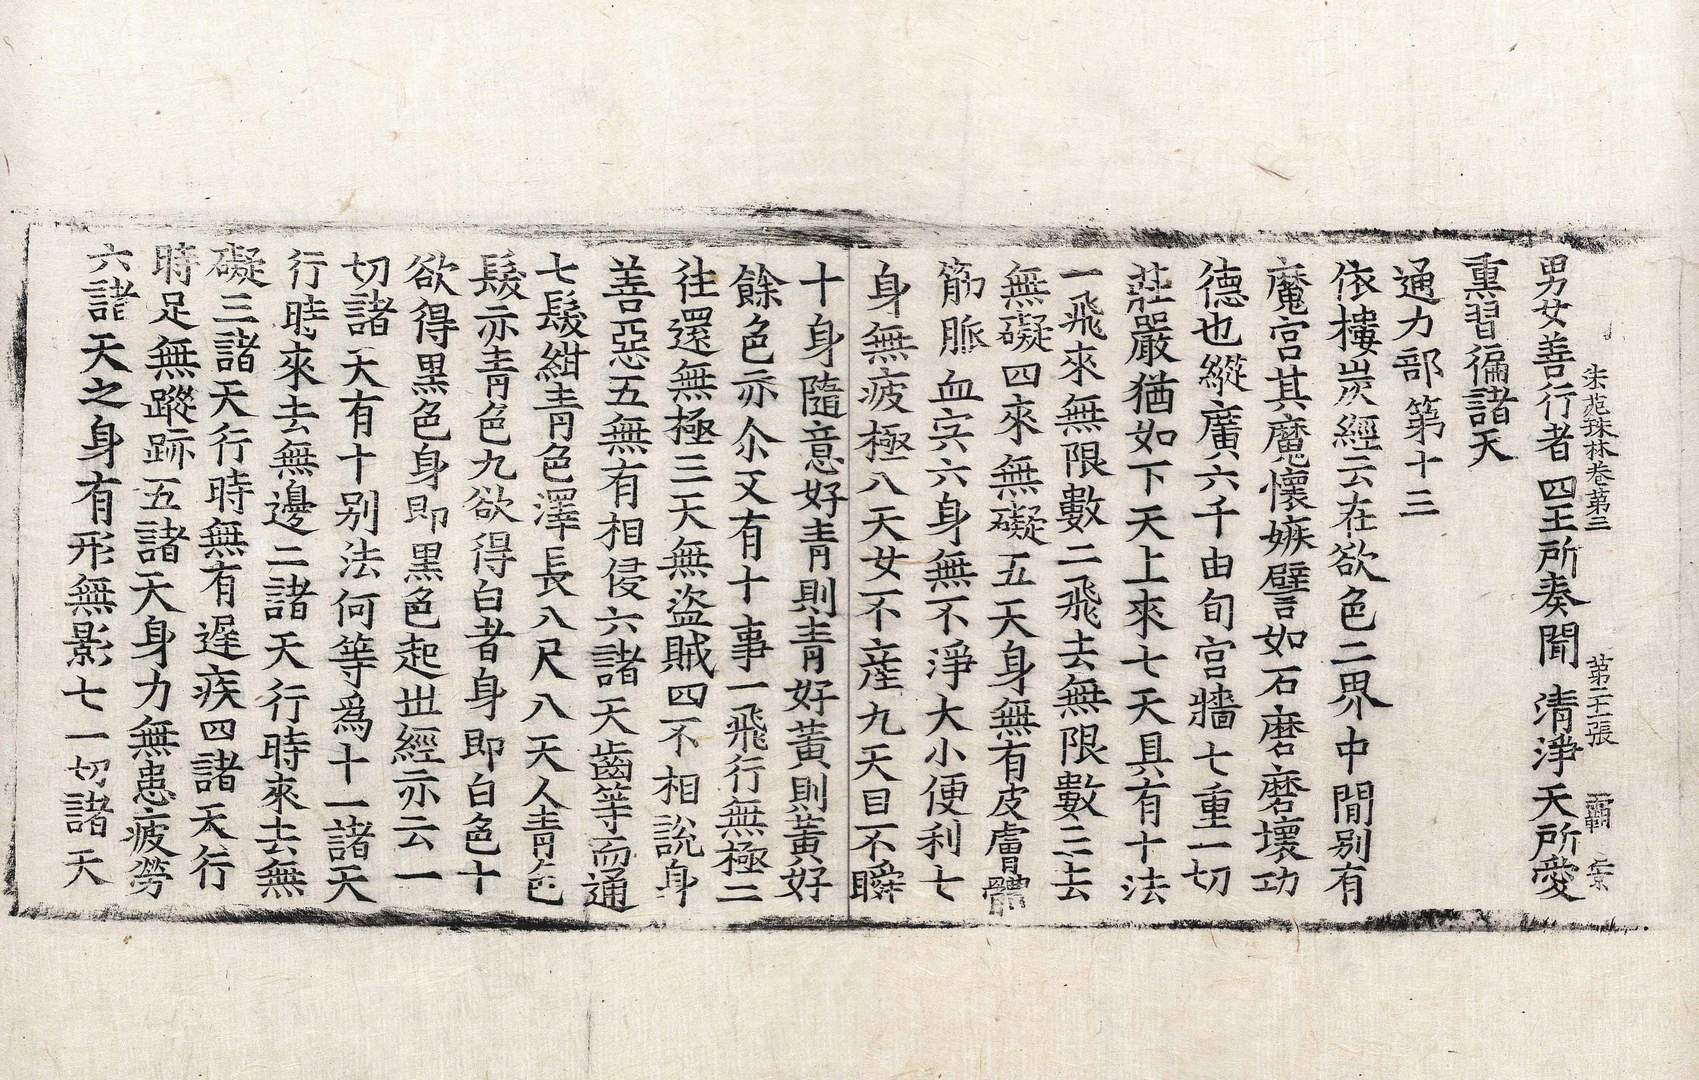 朱苑珠林卷第三 第三十二張 覇 字号
男女善行者四王所奏聞 清淨天所愛
熏習徧諸天
通力部第十三
依樓炭經云在欲色二界中閒别有
魔宮其魔懷嫉譬如石磨磨壞功
德也縱廣六千由旬宮牆七重一切
莊嚴猶如下天上來七天具有十法
一飛來無限數二飛去無限數三去
無礙四來無礙五天身無有皮膚體
筋脈血宍六身無不淨大小便利七
身無疲極八天女不產九天目不瞬
十身隨意好靑則靑好黃則黃好
餘色亦尒又有十事一飛行無極二
往還無極三天無盜賊四不相說身
善惡五無有相侵六諸天齒等而通
七髮紺靑色澤長八尺八天人靑色
髮亦靑色九欲得白者身即白色十
欲得黑色身即黑色起世經亦云一
切諸天有十别法何等爲十一諸天
行時來去無邊二諸天行時來去無
礙三諸天行時無有遲疾四諸天行
時足無蹤跡五諸天身力無患疲勞
六諸天之身有形無影七一切諸天